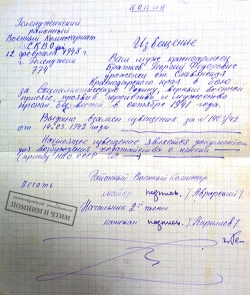 копия
Геленджикский
районный
Военный Комиссариат
С К В О
12 февраля 1948 г.
г. Геленджик
774
Извещение
Ваш муж красноармеец
уроженец ст. Славянская
Краснодарского края в бою
за Социалистическую Родину, верный военной
присяге, проявив геройство и мужество
пропал без вести в октябре 1941 года.
Выдано взамен извещения за № 1401/42
от 14.03.1942 года
Настоящее извещение является документом
для возбуждения ходатайства о пенсии
(приказ НКО СССР №
Районный Военный Комиссар
Печать
майор подпись /
Начальник 2й части
капитан подпись /Кириллов/
ПОМНИМ И ЧТИМ